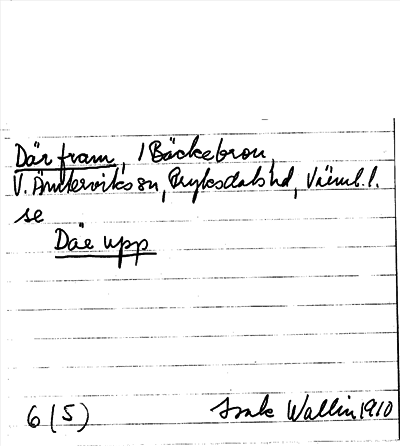 Där fram, / Bäckebron,
V. Ämterviks sn, Fryksdals hd, Värml. l.
se
Där upp
6 (5) Wallin 1910